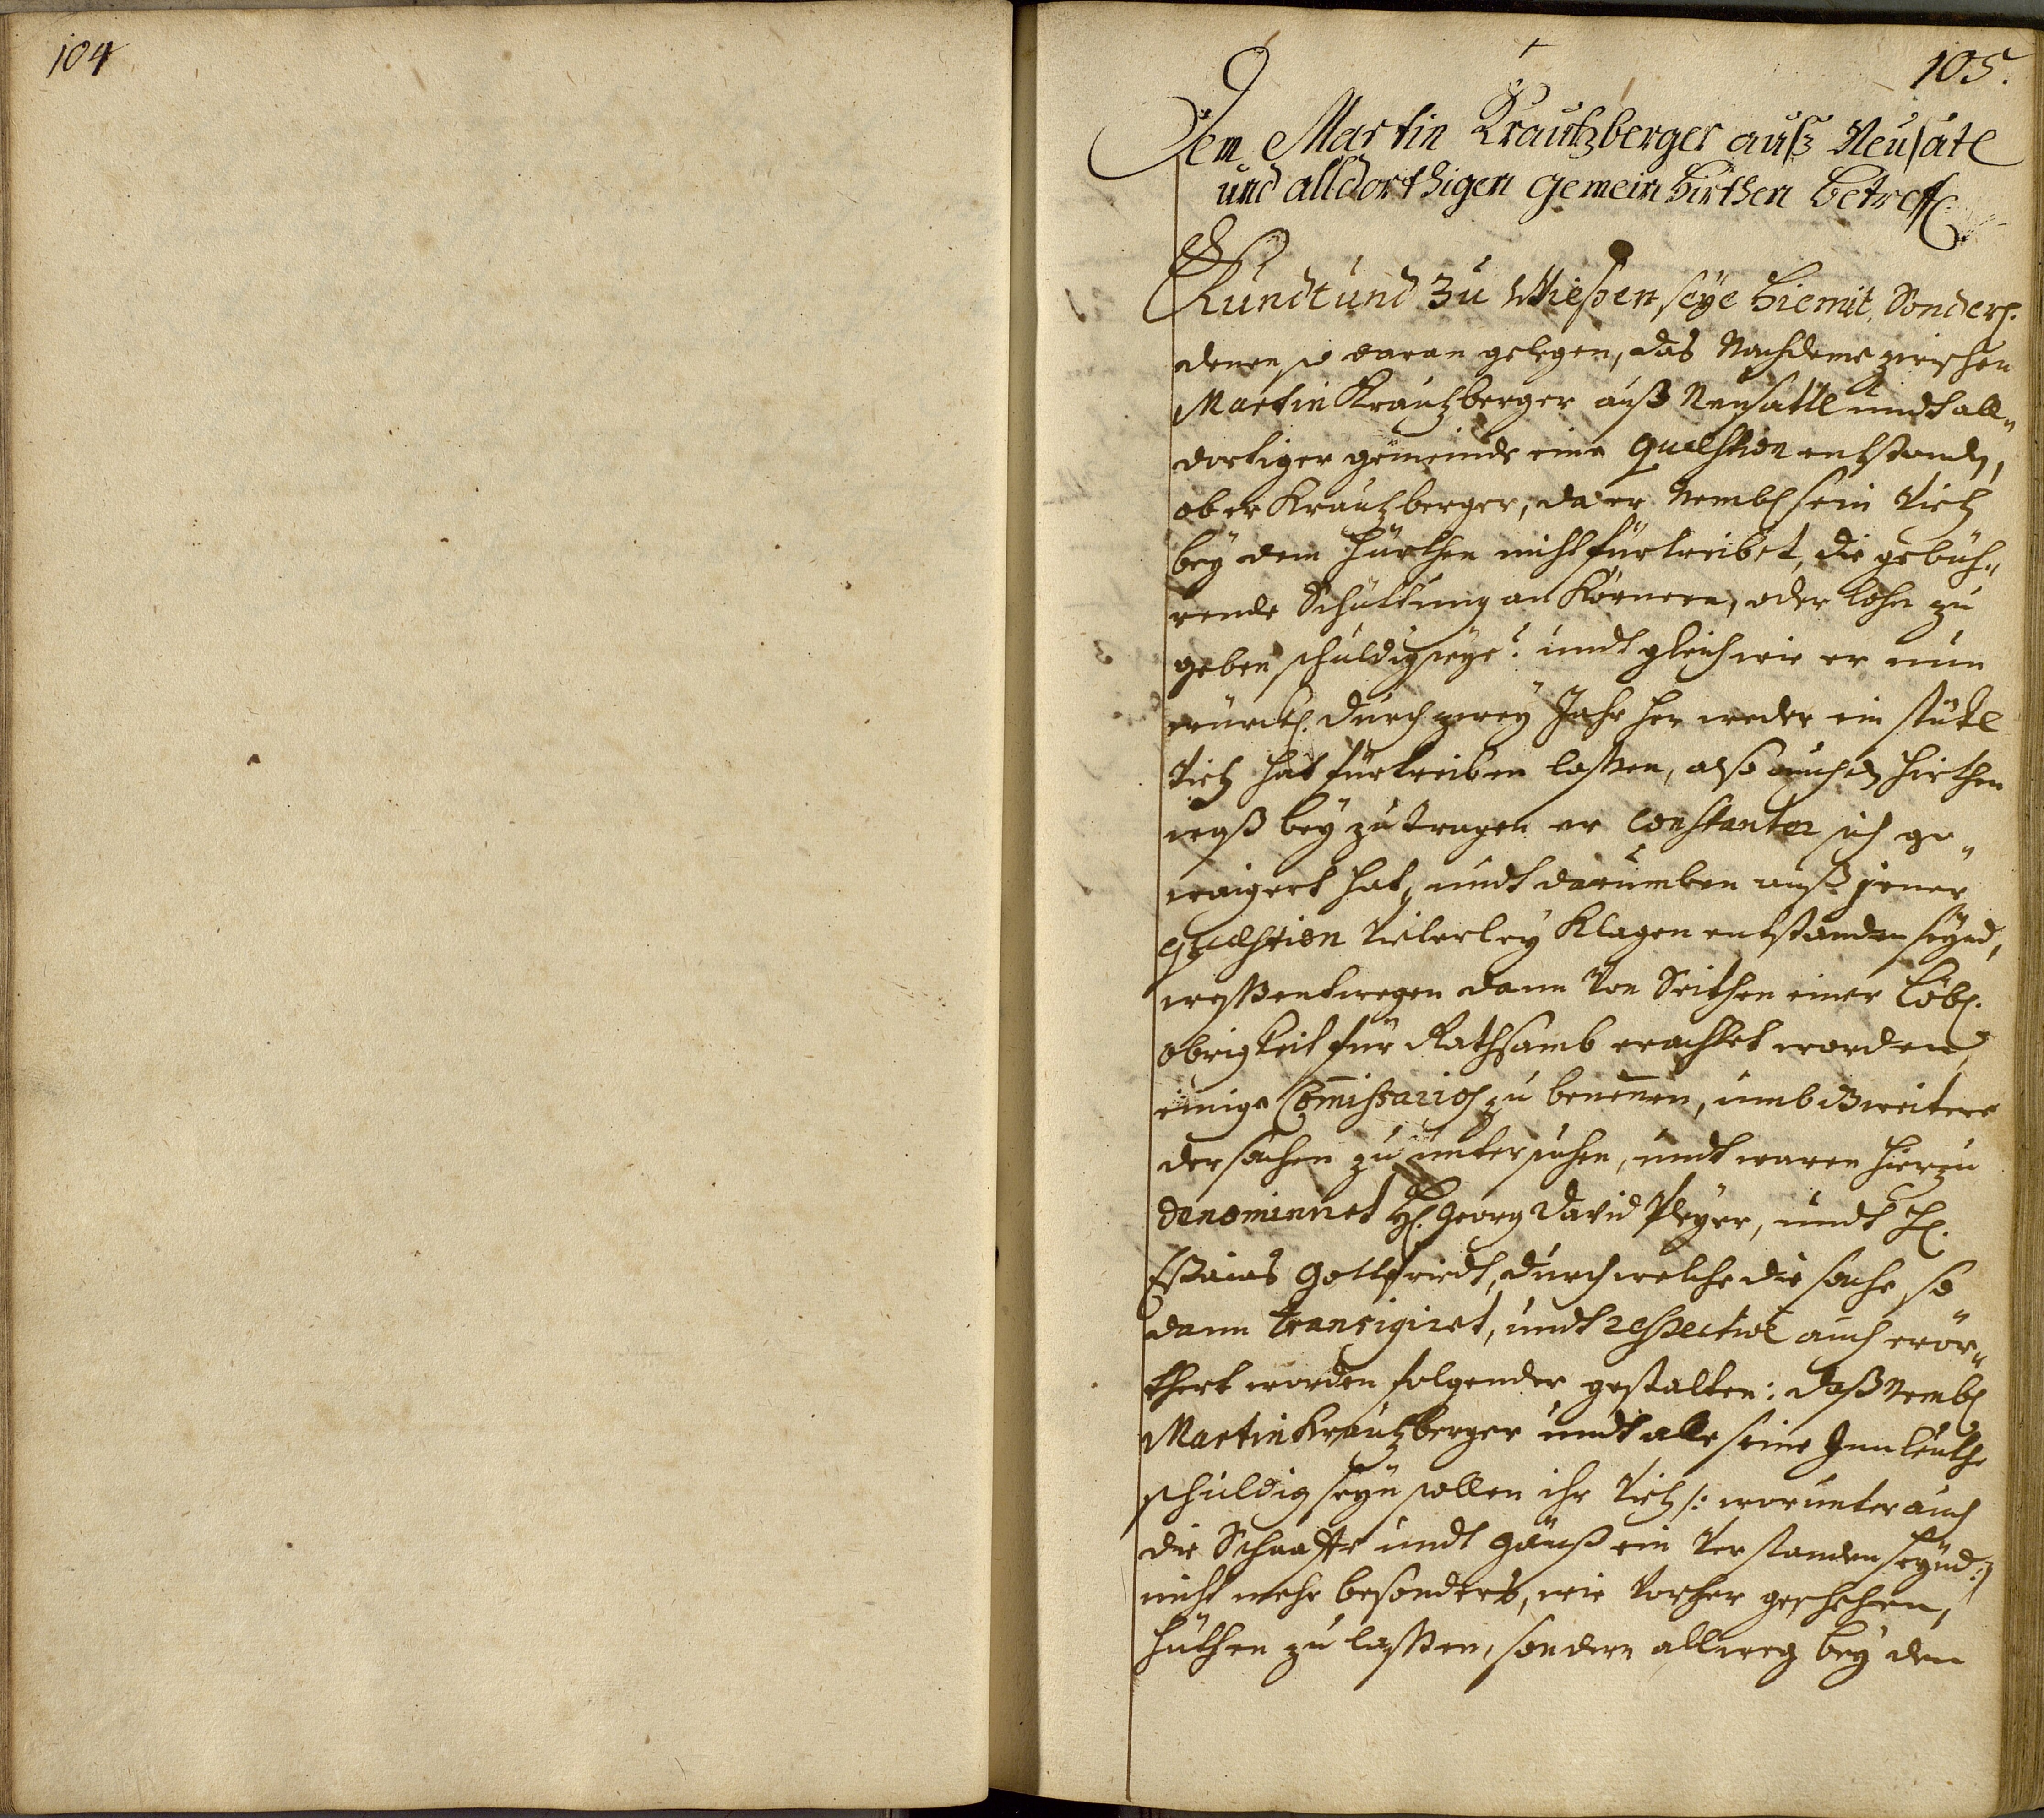 104
105.
Dem Martin Krautzberger auß Neusatl
und alldorthigen gemein Hirthen betreff
Kundt und Zu Wießen seye hiemit, Sonderl.
denen so daran gelegen, das Nachdeme zwischen
Martin Krautzberger auß Neusattl undt all„
dortiger gemeinde eine Quaestion entstandn,
ob er Krautzberger, da er Nembl sein Vieh
bey dem Hürthen nicht fürtreibet, die gebüh„
rende Schüttung an Körnern, oder lohn zu
geben schuldig seye? undt gleich wie er nun
würckl. durch zwey Jahr her weder ein stükl
Vieh hat fürtreiben laßen, also auch dn Hirthen
waß bey zu tragen er constanter sich ge„
waigert hat, undt darumben auß jener
Quaestion Vielerley Klagen entstanden seynd,
weßentwegen dann Von Seithen einer Löbl.
obrigkeit für Rathsamb erachtet worden,
einige Com̄issarios zu benen̄en, umb weiters
der sachen zu untersuchen, undt waren hierzu
denominiret H. Georg David Pleyer, undt H.
Esaias Gottfriedt, durch welche die sache so
dann transigiret, undt respective auch erör„
thert worden folgender gestalten: daß Nembl
Martin Krautzberger undt alle seine Innleuthe
schuldig seyn sollen ihr Vieh /: worunter auch
die Schaaffe undt gänß ein Verstanden seynd :/
nicht mehr besonders, wie Vorher geschehen,
hüthen zu laßen, sondern allweg bey dem